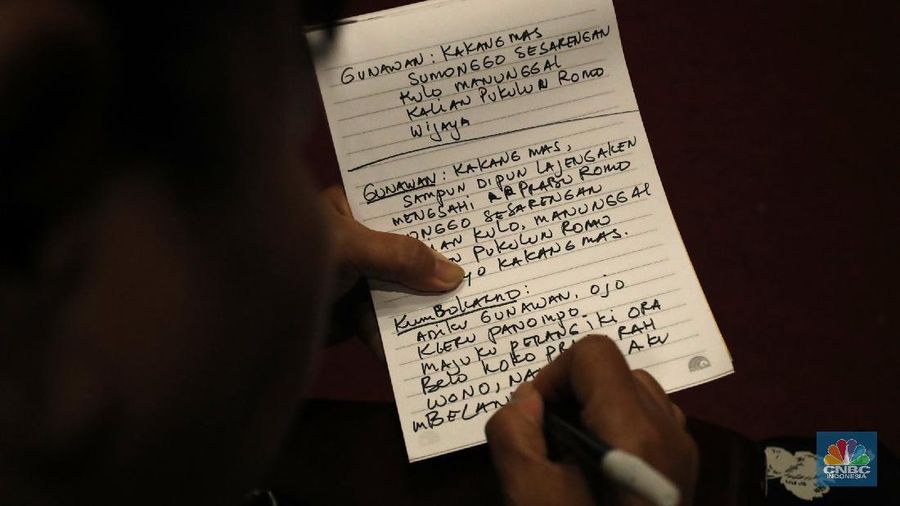 GUNAWAN : KAKANG MAS
SUMONGGO SESARENGAN
KULO MANUNGGAL
KALIAN PUKULUN ROMO
WIJAYA
GUNAWAN : KAKANG MAS,
SAMPUN DIPUN LAJENGAKEN
MENGSAHI PRABU ROMO
ONGGO SESARENGAN
KULO, MANUNGGAL
PUKULUN ROMO
YO KAKANG MAS.
KUMBOKARNO :
ADIKU GUNAWAN, OJO
KLERU PANOMPO.
MAJUKU PERANG, IKI ORA
BELO KOKO PRA RAH
WONO, NA AKU
MBELAN
CNBC
INDONESIA